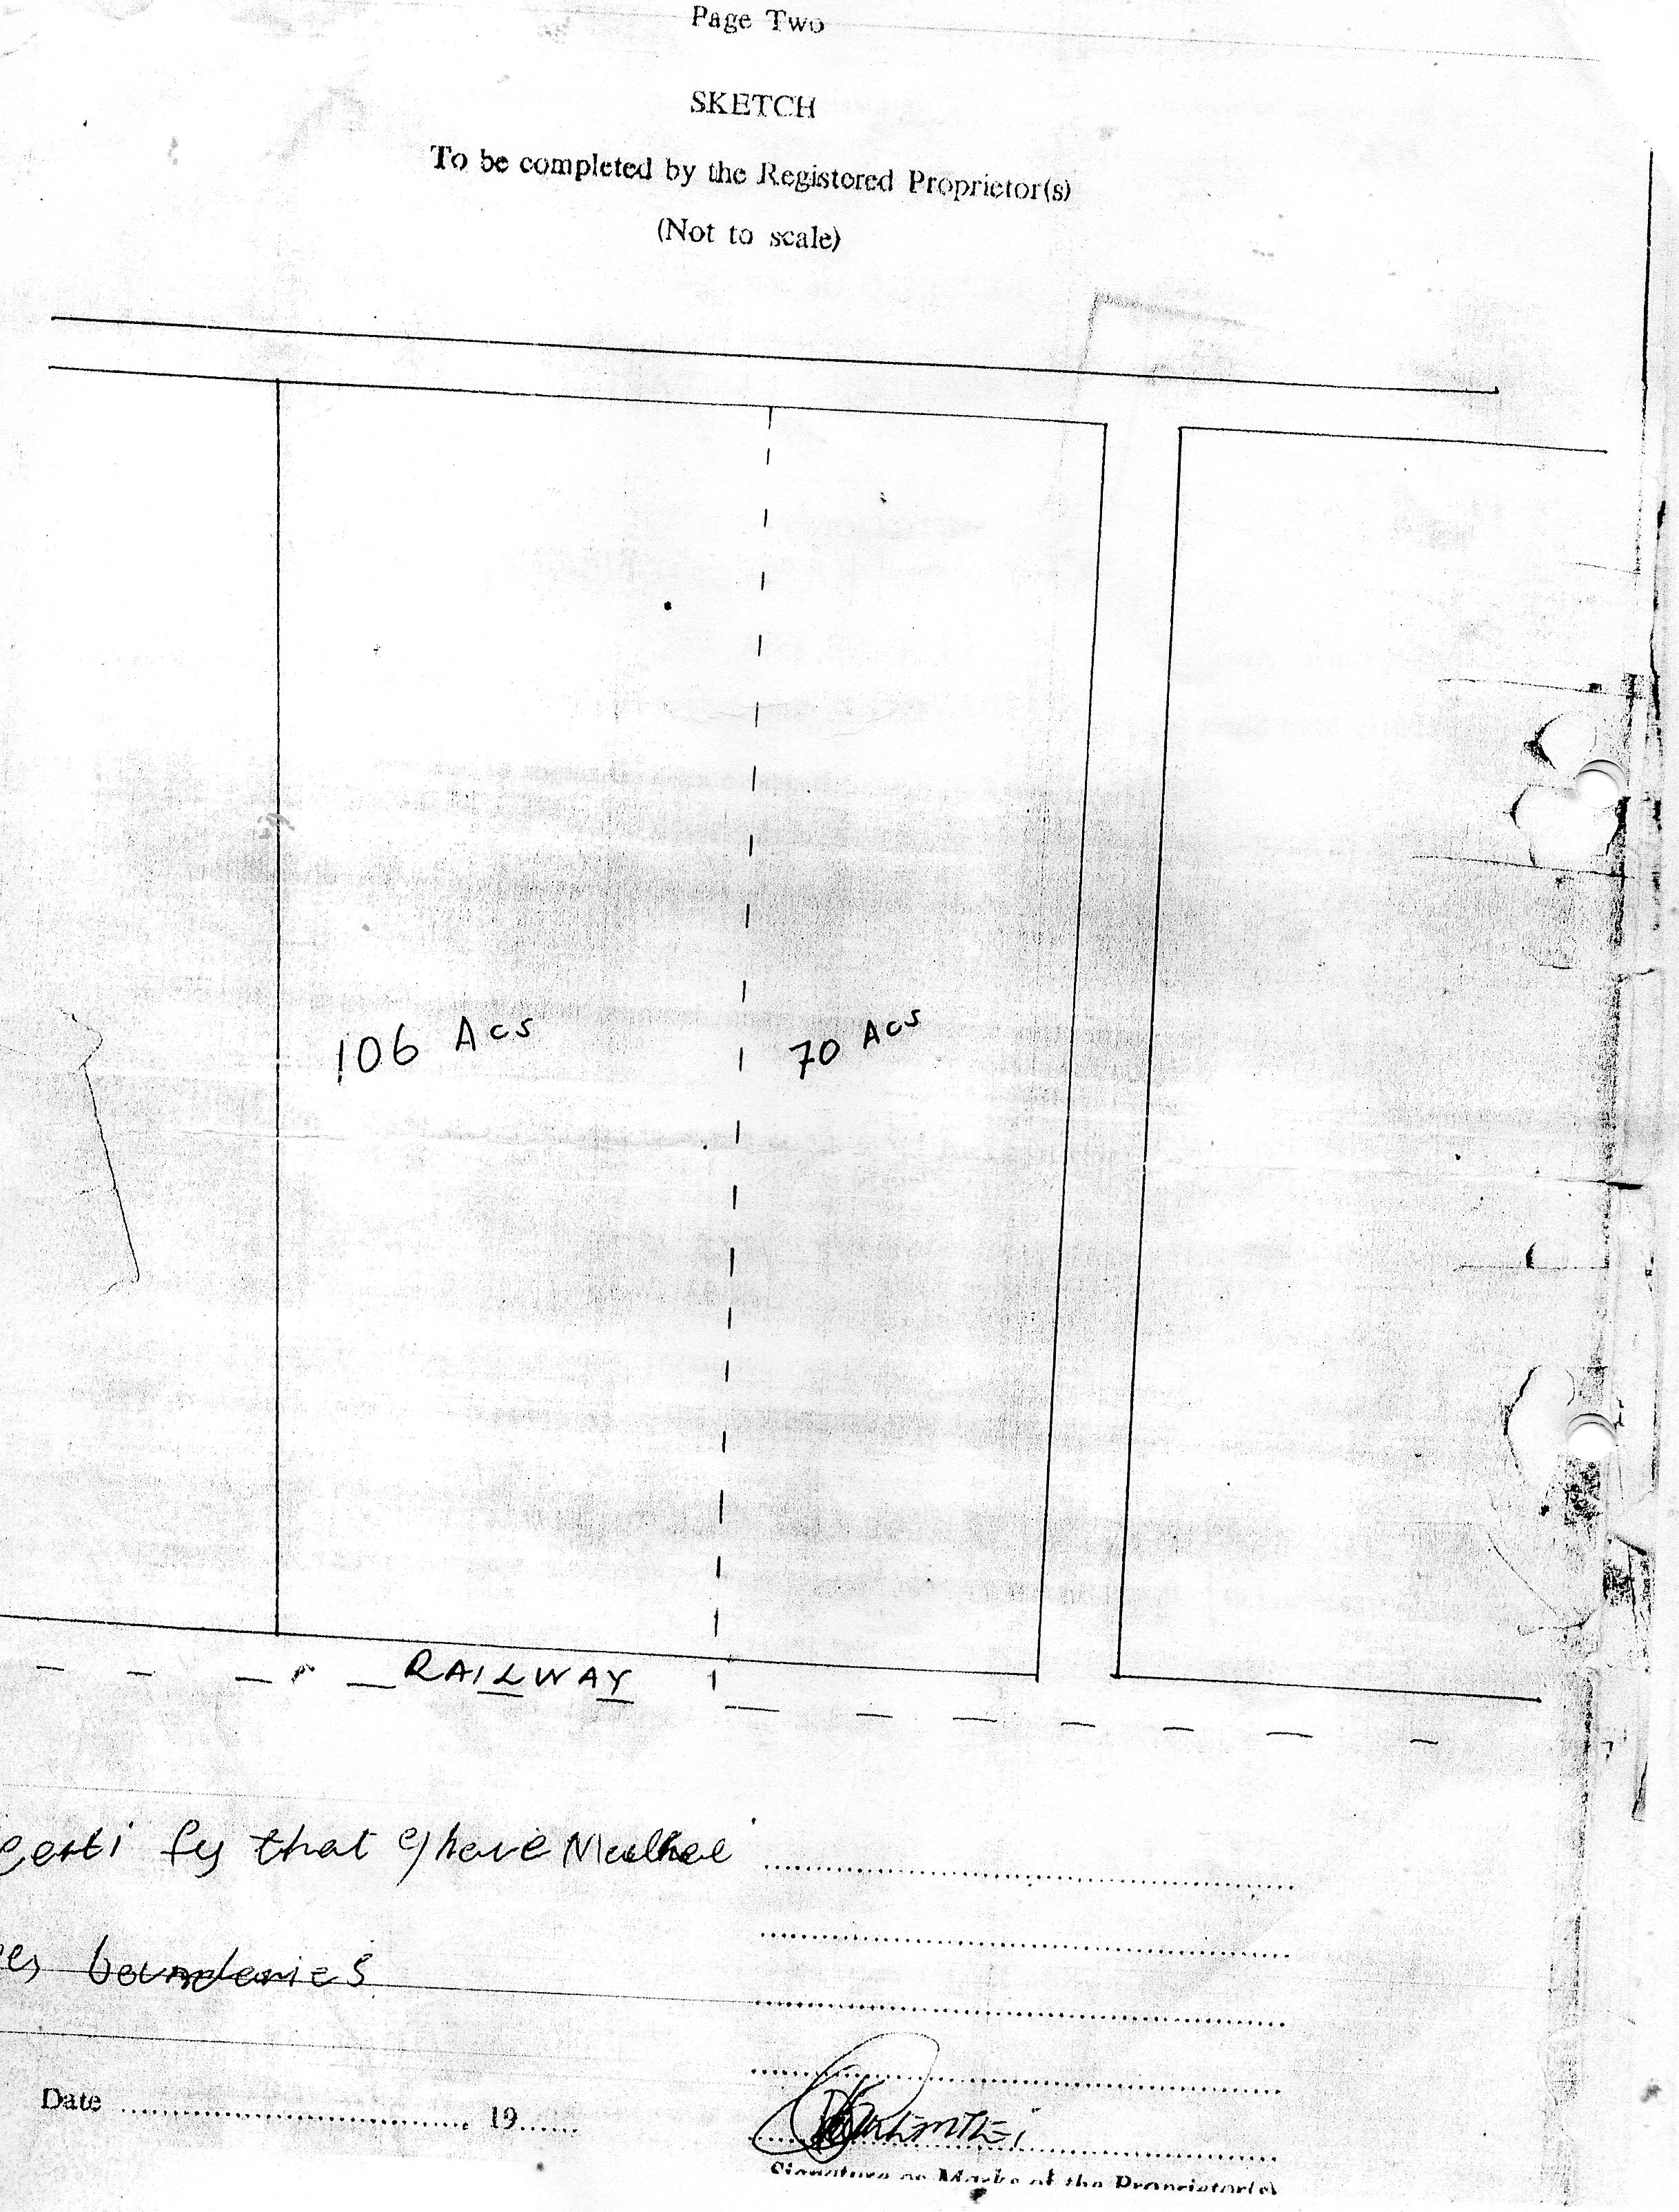 Page Two
SKETCH
To be completed by the Registered Proprietor(s)
(Not to scale)
106 Acs
70 Acs
RAILWAY
certi fy that I have
boundaries
Date ............................................ 19......
Signature or Marks of the Proprietor(s)